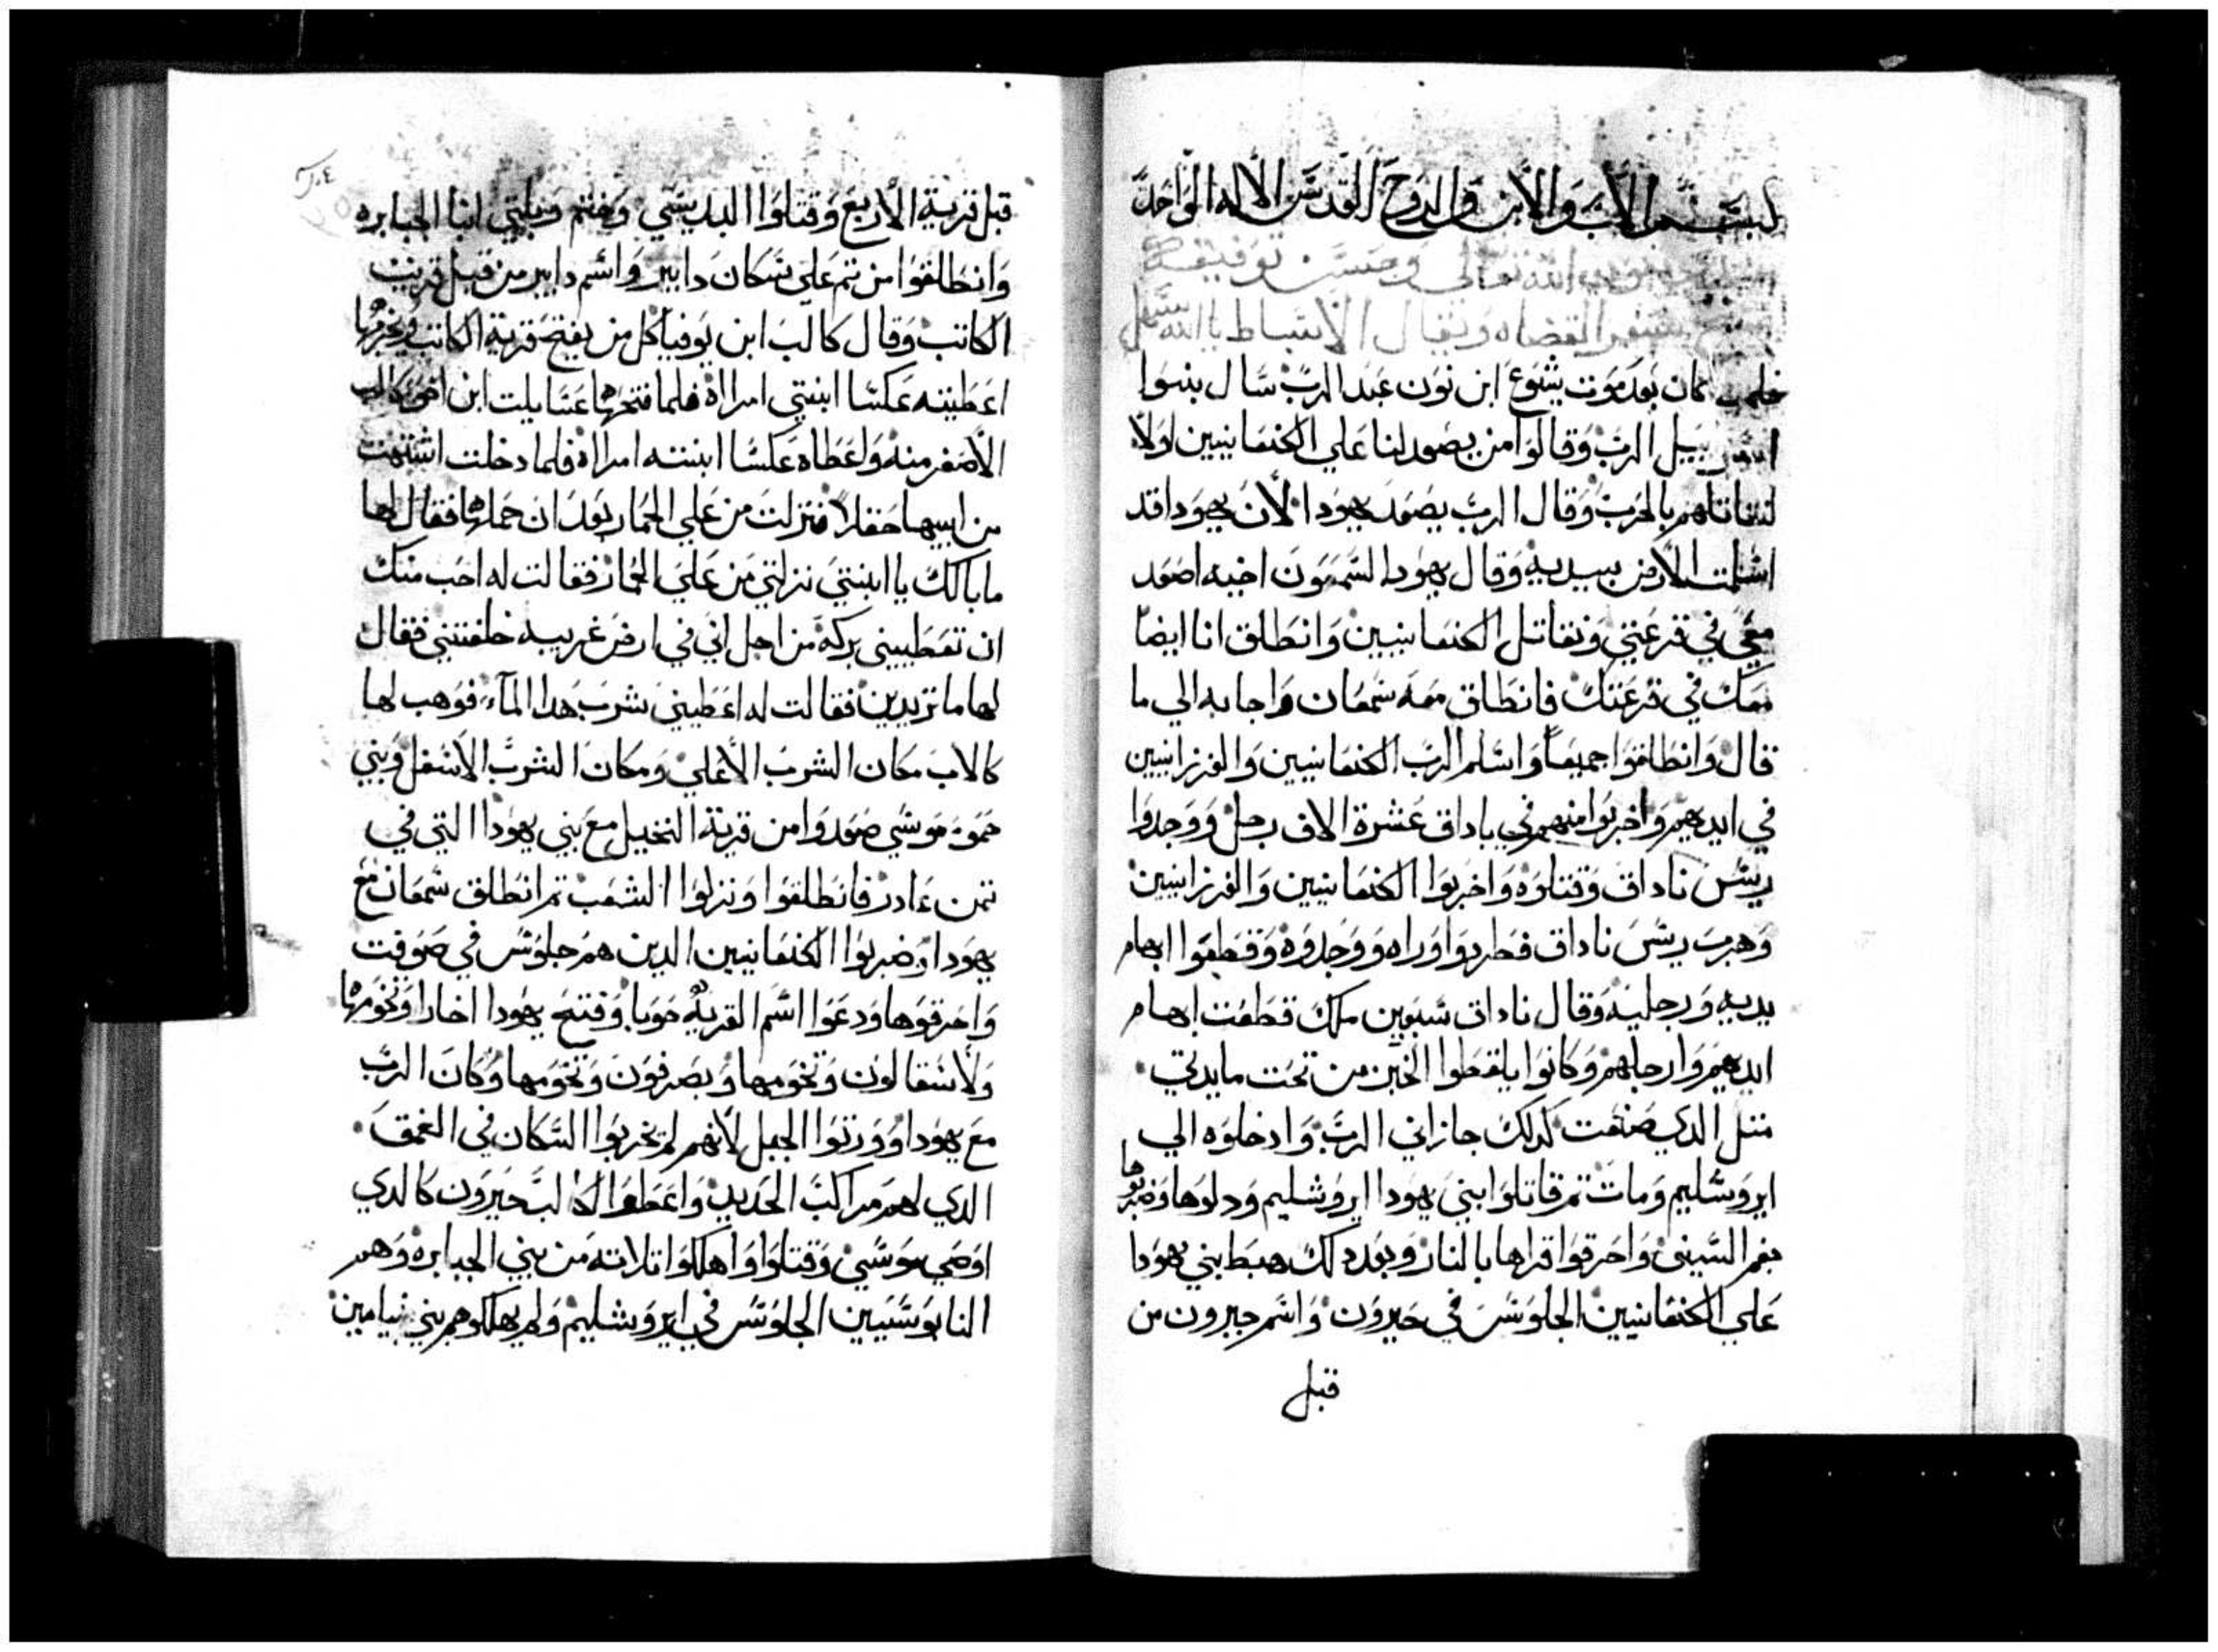 بسم الاب والابن والروح القدس الاله الواحد
الله تعالي وحسن توفيقه
سفر القضاه ويقال الاسباط يا الله سهل
كان بعد موت يشوع ابن نون عبد الرب سال بنوا
الرب وقالوا من يصعد لنا علي الكنعانيين اولا
بالحرب وقال الرب يصعد يهودا لان يهودا قد
اسلمت الارض بيديه وقال يهودا لشمعون اخيه اصعد
معي في قرعتي ونقاتل الكنعانيين وانطلق انا ايضا
معك في قرعتك فانطلق معه شمعان واجابه الي ما
قال وانطلقوا جميعا واسلم الرب الكنعانيين والفرزانيين
في ايديهم واخربوا منهم في باداق عشرة الاف رجل ووجدوا
ريس ناداق وقتلوه واخربوا الكنعانيين والفرزانيين
وهرب ريس ناداق فطردوا وراه ووجدوه وقطعوا ابهام
يديه ورجليه وقال ناداق سبعين ملك قطعت ابهام
ايديهم وارجلهم وكانوا يلقطوا الخبز من تحت مايدتي
متل الدي صنعت كدلك جازاني الرب وادخلوه الي
ايروشليم ومات تم قاتلوا بني يهودا ايروشليم ودلوها وضربوها
بفم السيف واحرقوا قراها بالنار وبعد دلك هبط بني يهودا
علي الكنعانيين الجلوس في حبرون واسم حبرون من
قبل
قبل قرية الاربع وقتلوا انبا الجبابره
وانطلقوا من تم علي سكان دابير واسم دابير من قبل قريت
الكاتب وقال كالب ابن يوفيا كل من يفتح قرية الكاتب ويخربها
اعطيته عكسا ابنتي امراة فلما فتحها عتنايلت ابن اخو كالب
الاصغر منه واعطاه عكسا ابنته امراة فلما دخلت اشتهت
من ابيها حقلا فنزلت من علي الحمار بعد ان حملها فقال لها
ما بالك يا ابنتي نزلتي من علي الحمار فقالت له احب منك
ان تعطيني بركة من اجل اني في ارض غريبه خلفتني فقال
لها ما تريدين فقالت له اعطيني شرب هدا المآء فوهب لها
كالاب مكان الشرب الاعلي ومكان الشرب الاسفل وبني
حمو موسي صعدوا من قرية النخيل مع بني يهودا التي في
تمن عادر فانطلقوا ونزلوا الشعب تم انطلق شمعان مع
يهودا وضربوا الكنعانيين الدين هم جلوس في صوقت
واحرقوها ودعوا اسم القرية حوبا وفتح يهودا اخارا وتخومها
ولاسقالون وتخومها وبصرفون وتخومها وكان الرب
مع يهودا وورتوا الجبل لانهم لم يخربوا السكان في الغمق
الدي لهم مراكب الحديد واعطوا لكالب حبرون كالدي
اوصي موسي وقتلوا واهلكوا تلاتة من بني الجبابره وهم
النابوسيين الجلوس في ايروشليم ولم يهلكوهم بني بنيامين